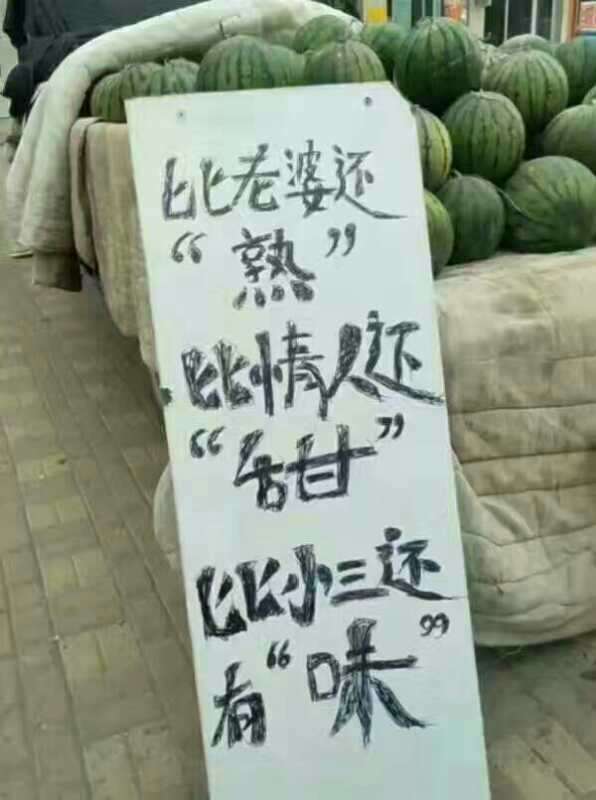 比老婆还
“熟”
比情人还
“甜”
比小三还
有“味”